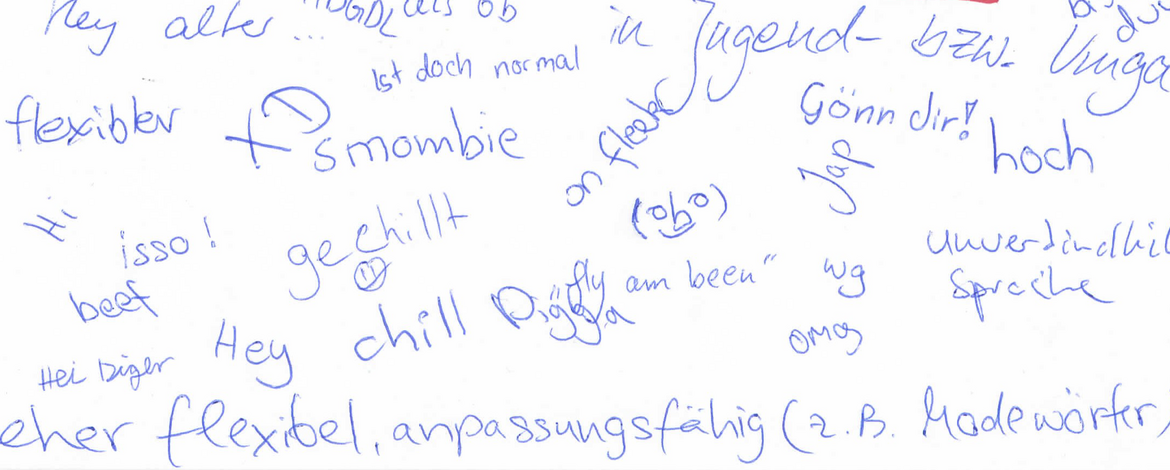 Hey alter ...
als ob
in Jugend- bzw.
Ist doch normal
flexibler
smombie
on fleek
Gönn dir!
Jap
hoch
Hi
isso!
gechillt
beef
"fly am been"
wg
Sprache
Hey chill Digga
omg
Hei Diger
eher flexibel, anpassungsfähig (z.B. Modewörter,